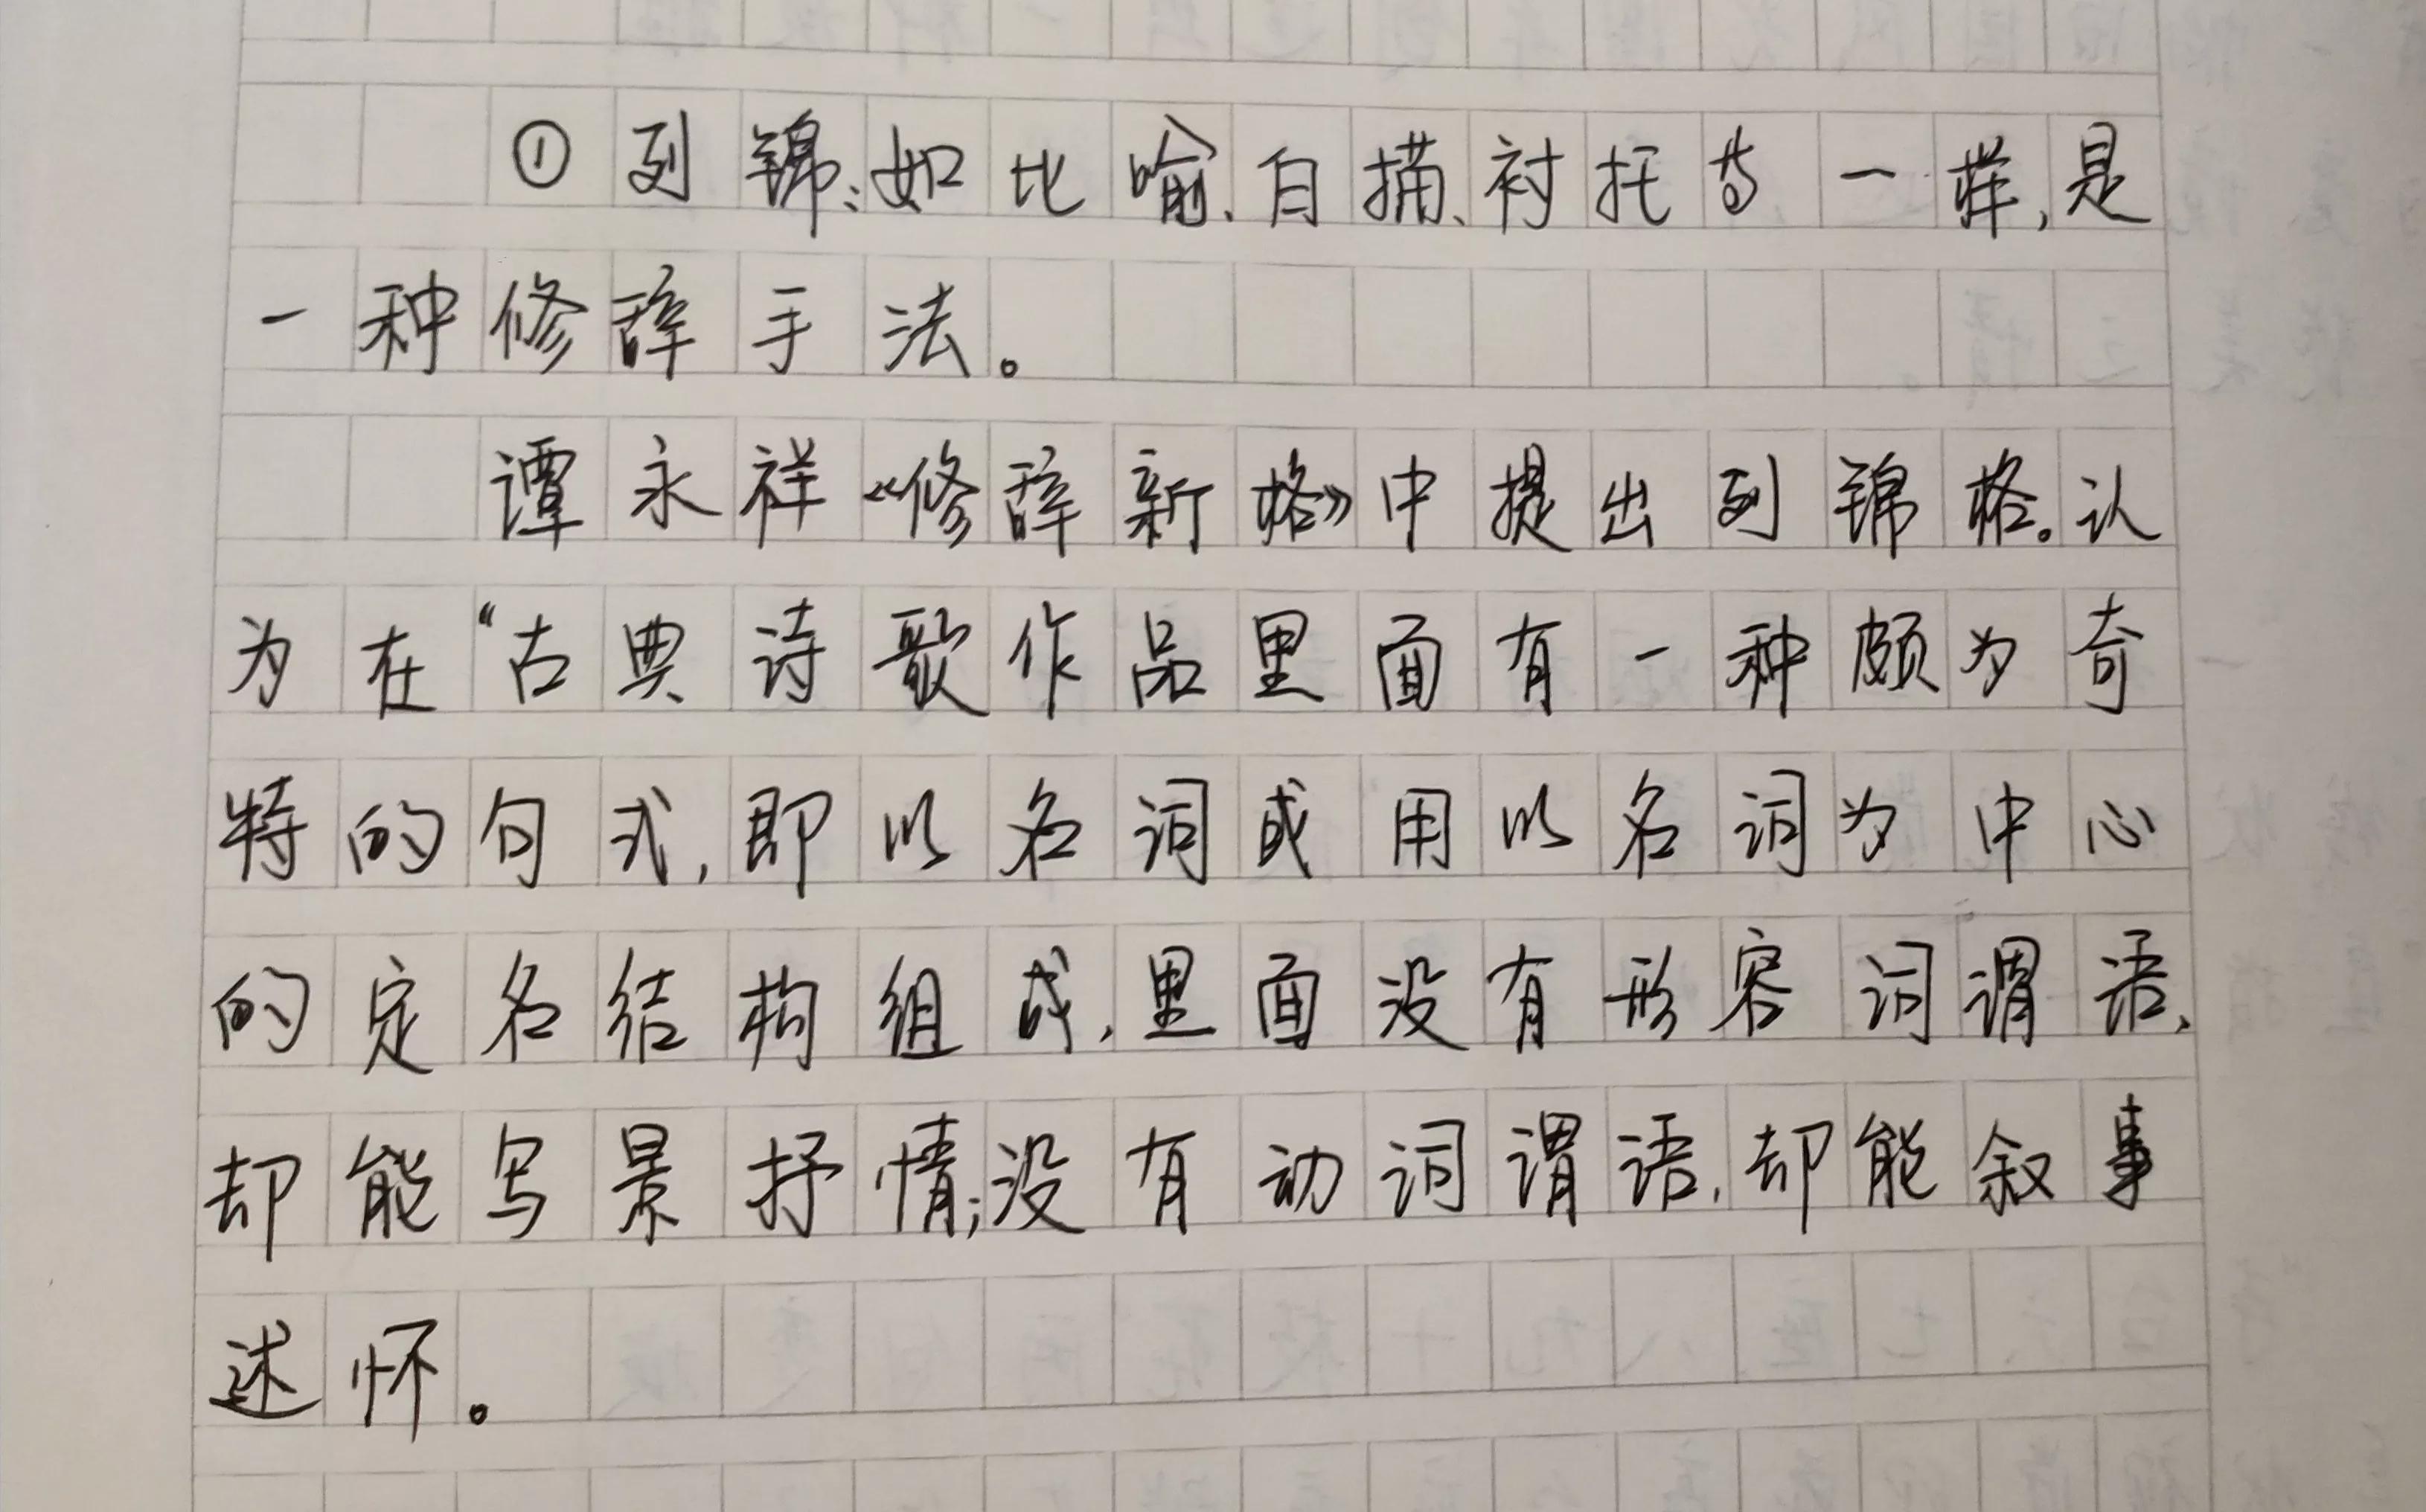 ①列锦:如比喻、白描、衬托等一样,是
一种修辞手法。
谭永祥《修辞新格》中提出列锦格。认
为在“古典诗歌作品里面有一种颇为奇
特的句式,即以名词或用以名词为中心
的定名结构组成,里面没有形容词谓语,
却能写景抒情;没有动词谓语,却能叙事
述怀。